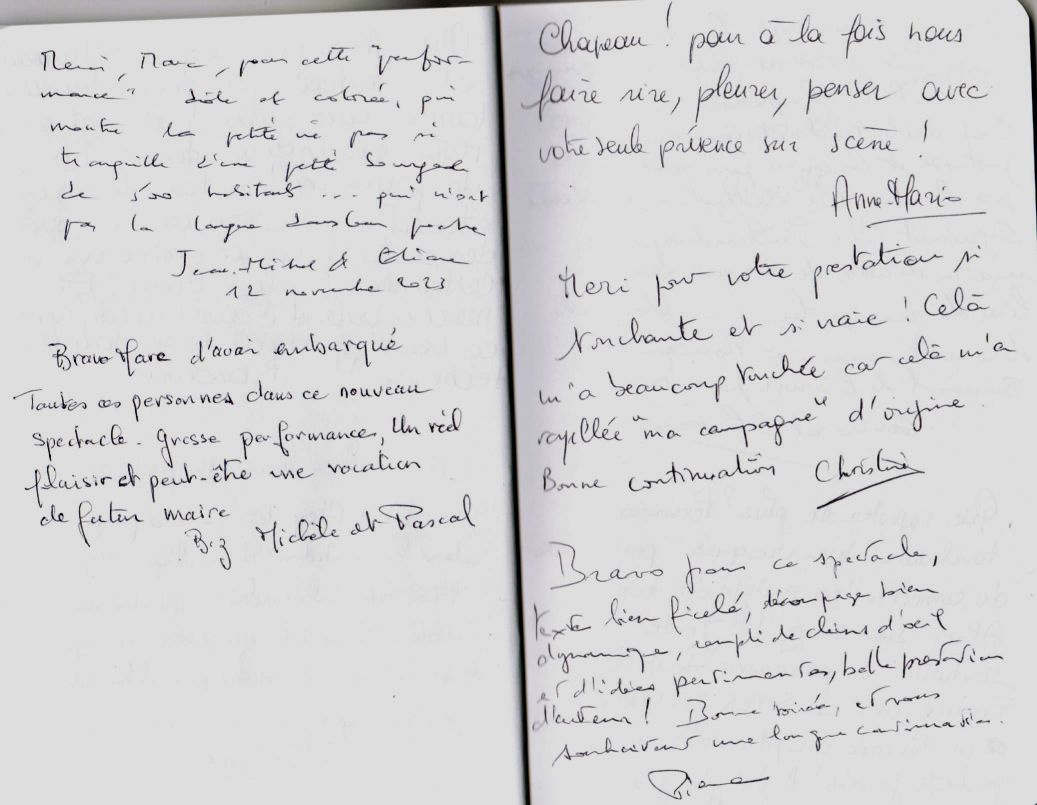 Merci, Marc, pour cette "perfor-
mance" drôle et colorée, qui
montre la petite vie pas si
tranquille d'une petite bourgade
de 500 habitants ... qui n'ont
pas la langue dans leur poche
Jean-Michel & Eliane
12 novembre 2023
Bravo Marc d'avoir embarqué
Toutes ces personnes dans ce nouveau
spectacle. Grosse performances, Un réel
plaisir et peut-être une vocation
de futur maire
Biz Michèle et Pascal
Chapeau ! pour à la fois nous
faire rire, pleurer, penser avec
votre seule présence sur scène !
Anne-Marie
Merci pour votre prestation si
touchante et si vraie ! Celà
m'a beaucoup touchée car celà m'a
rappellée "ma campagne" d'origine.
Bonne continuation Christine
Bravo pour ce spectacle,
texte bien ficelé, découpage bien
dynamique, rempli de clins d'oeil
et d'idées pertinentes, belle prestation
d'acteur ! Bonne soirée, et vous
souhaitant une longue continuation.